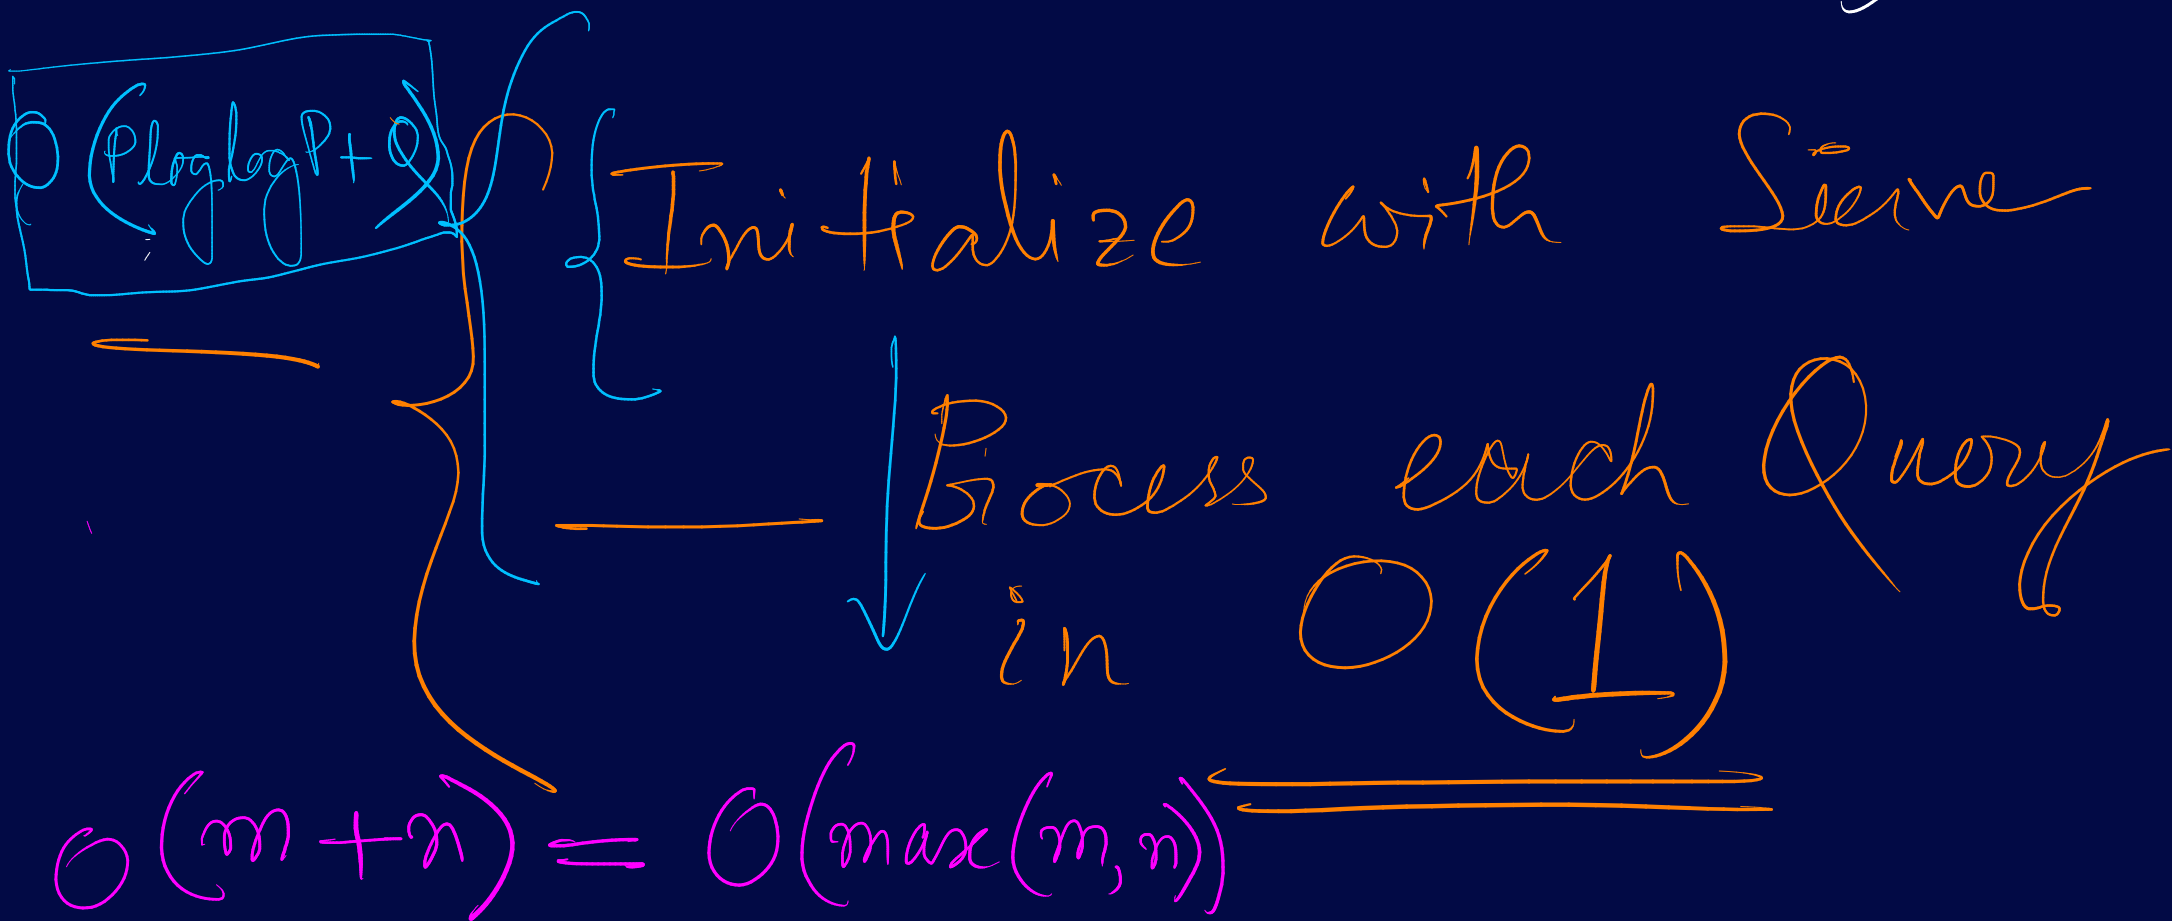 O(PloglogP+Q)
Initialize with Sieve
Process each Query
in O(1)
O(m+n) = O(max(m,n))